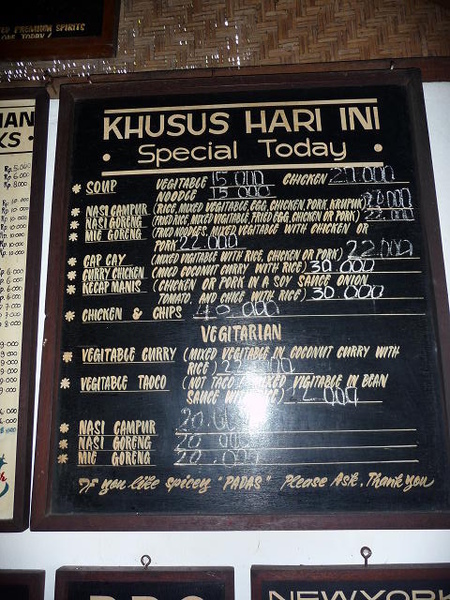 KHUSUS HARI INI
• Special Today •
* SOUP VEGETABLE 15.000 CHICKEN
NOODLE 15.000
* NASI CAMPUR (RICE, MIXED VEGETABLE, EGG, CHICKEN, PORK, KRUPUK)
* NASI GORENG (FRIED RICE, MIXED VEGETABLE, FRIED EGG, CHICKEN OR PORK) 22.000
* MIE GORENG (FRIED NOODLES, MIXED VEGETABLE WITH CHICKEN OR
PORK 22.000
* CAP CAY (MIXED VIGITABLE WITH RICE, CHICKEN OR PORK) 22.000
* CURRY CHICKEN (MILD COCONUT CURRY WITH RICE) 30.000
* KECAP MANIS (CHICKEN OR PORK IN A SOY SAUCE ONION,
TOMATO, AND CHILE WITH RICE) 30.000
* CHICKEN & CHIPS
VEGITARIAN
* VEGITABLE CURRY (MIXED VEGITABLE IN COCONUT CURRY WITH
RICE)
* VEGITABLE TAOCO (NOT TACO MIXED VIGITABLE IN BEAN
SAUCE
* NASI CAMPUR
* NASI GORENG
* MIE GORENG
If you like spicey "PADAS" Please Ask, Thank you
NEW YORK